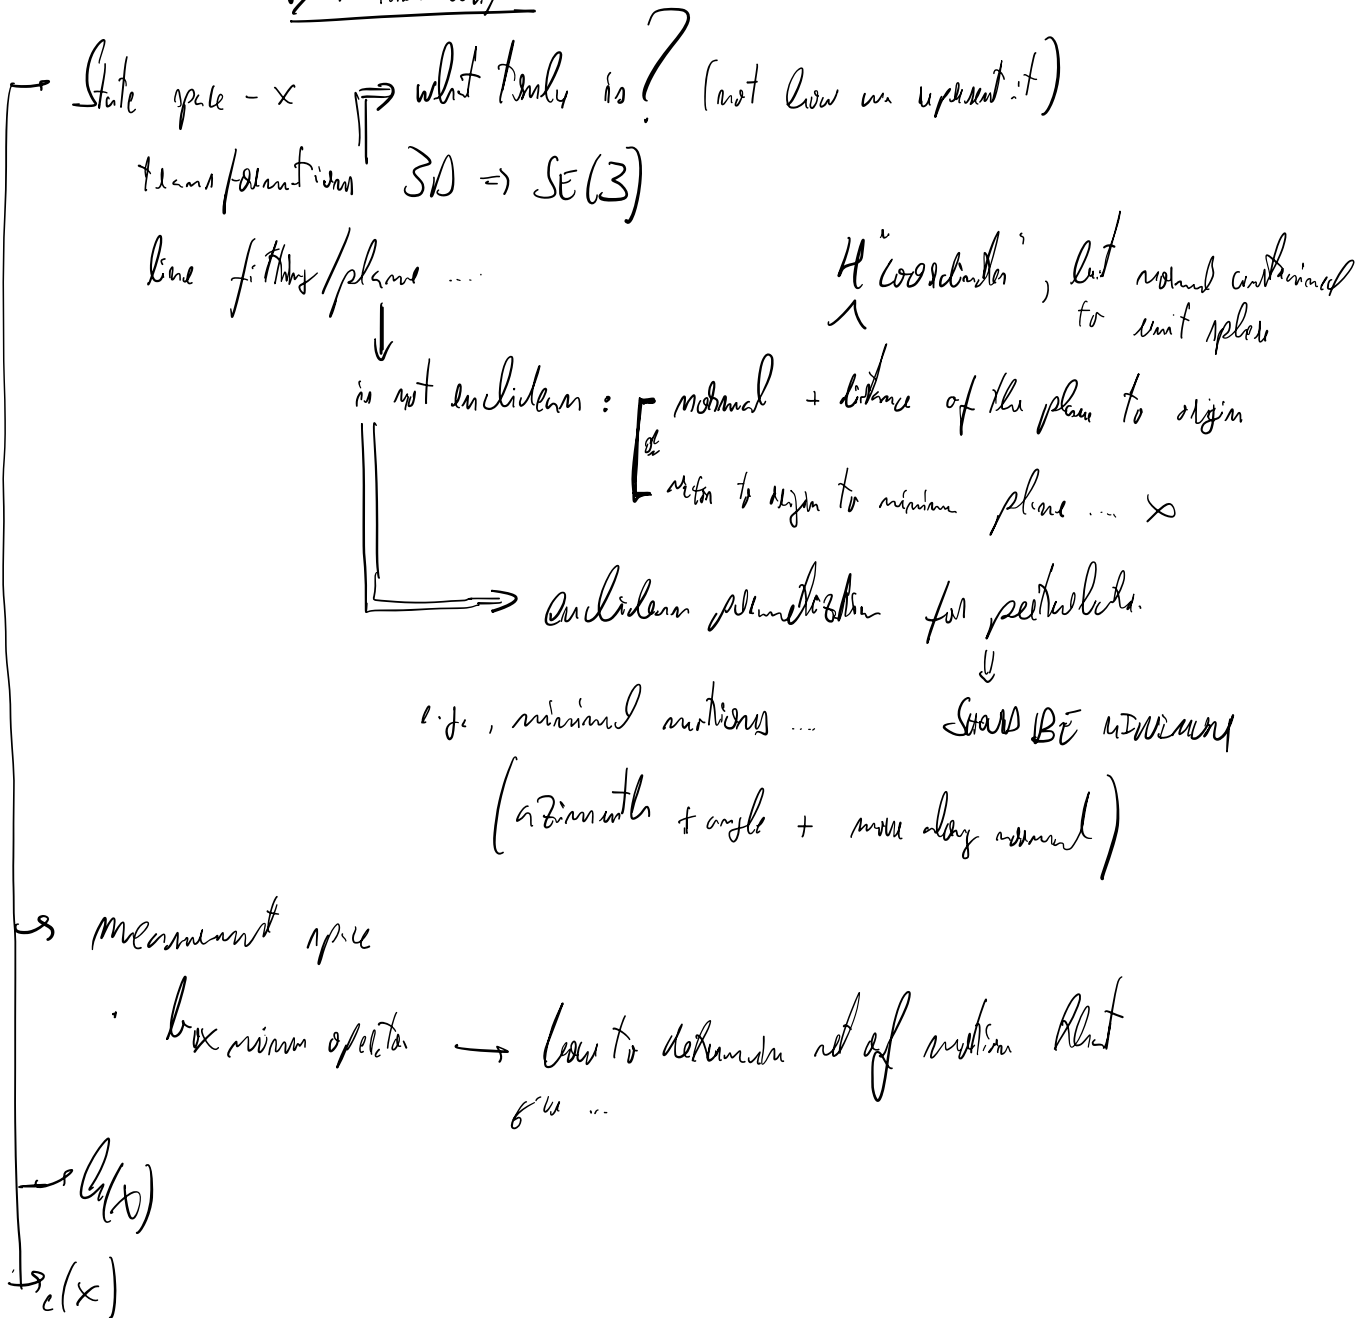 State space - x ⇒ what truly is? (not how we represent it)
transformations 3D => SE(3)
line fitting/plane ....
4 "coordinates", but normal constrained
to unit sphere
is not euclidean : normal + distance of the plane to origin
or
vector to origin to minimum plane .... x
euclidean parametrization for perturbations.
e.g., minimal motions ... SHOULD BE MINIMUM
(azimuth + angle + move along normal)
measurement space
. box minus operator → how to determine set of motion that
give ...
h(x)
e(x)